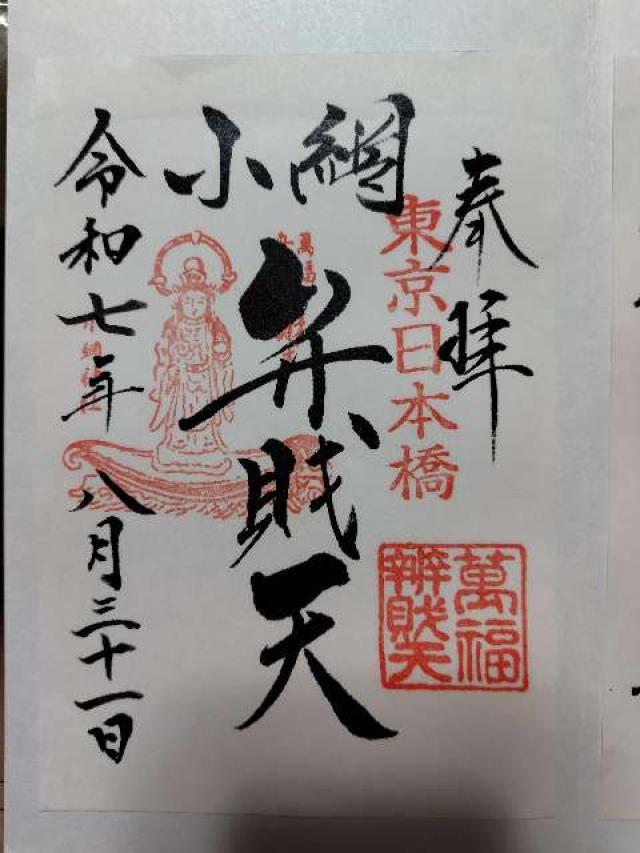 奉拝
東京日本橋
萬福
辨財天
小網
弁財天
令和七年八月三十一日